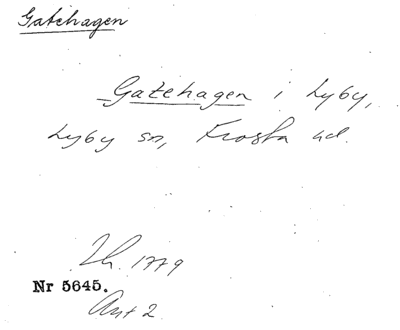 Gatehagen
Gatehagen i Lyby,
Lyby sn, Frosta hd.
Lh. 1779
Nr 5645.
Akt 2